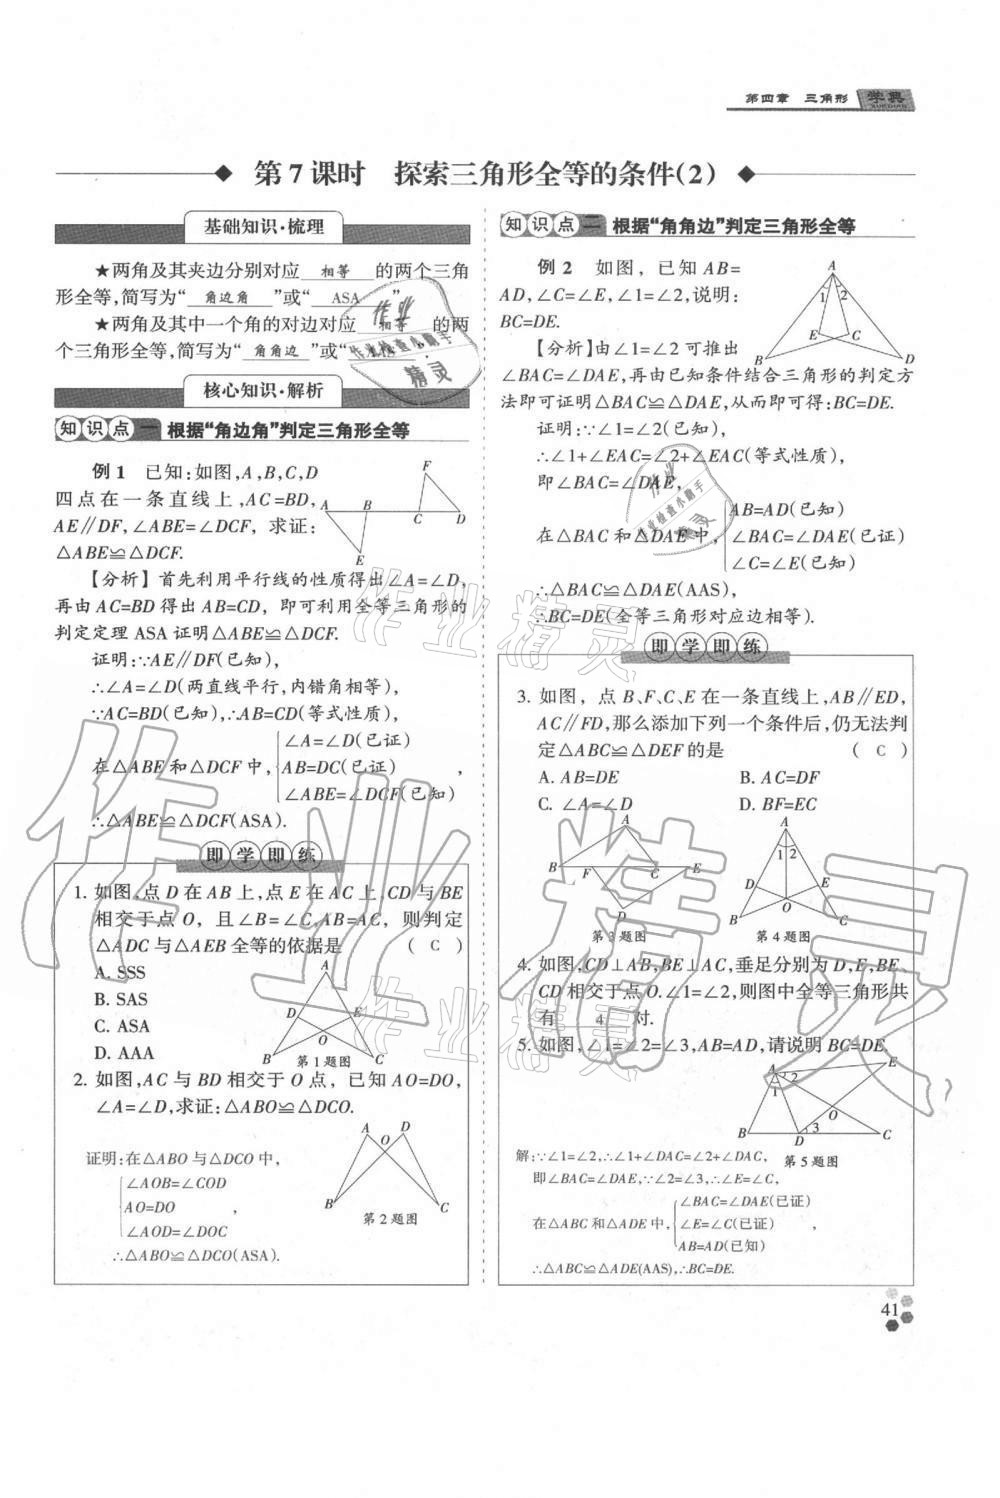 第四章 三角形 学典
XUEDIAN
第7课时 探索三角形全等的条件(2)
基础知识·梳理
★两角及其夹边分别对应 相等 的两个三角
形全等,简写为“ 角边角 ”或“ ASA ”.
★两角及其中一个角的对边对应 相等 的两
个三角形全等,简写为“ 角角边 ”或“
核心知识·解析
知识点一 根据“角边角”判定三角形全等
例1 已知:如图,A,B,C,D
四点在一条直线上,AC=BD,
AE∥DF,∠ABE=∠DCF, 求证:
△ABE≌△DCF.
F
A B C D
E
【分析】首先利用平行线的性质得出∠A=∠D,
再由 AC=BD 得出 AB=CD, 即可利用全等三角形的
判定定理 ASA 证明△ABE≌△DCF.
证明:∵AE∥DF(已知),
∴∠A=∠D(两直线平行,内错角相等),
∵AC=BD(已知),∴AB=CD(等式性质),
∠A=∠D(已证)
在△ABE 和△DCF 中, AB=DC(已证) ,
∠ABE=∠DCF(已知)
∴△ABE≌△DCF(ASA).
即学即练
1. 如图,点 D 在 AB 上,点 E 在 AC 上,CD 与 BE
相交于点 O, 且∠B=∠C,AB=AC, 则判定
△ADC 与△AEB 全等的依据是 ( C )
A. SSS
B. SAS
C. ASA
D. AAA
A
D E
O
B C
第1题图
2. 如图,AC 与 BD 相交于 O 点, 已知 AO=DO,
∠A=∠D,求证:△ABO≌△DCO.
A D
O
B C
第2题图
证明:在△ABO 与△DCO 中,
∠AOB=∠COD
AO=DO ,
∠AOD=∠DOC
∴△ABO≌△DCO(ASA).
知识点二 根据“角角边”判定三角形全等
例2 如图,已知 AB=
AD,∠C=∠E,∠1=∠2,说明:
BC=DE.
A
1 2
E C
B D
【分析】由∠1=∠2 可推出
∠BAC=∠DAE,再由已知条件结合三角形的判定方
法即可证明△BAC≌△DAE,从而即可得:BC=DE.
证明:∵∠1=∠2(已知),
∴∠1+∠EAC=∠2+∠EAC(等式性质),
即∠BAC=∠DAE,
AB=AD(已知)
在△BAC 和△DAE 中, ∠BAC=∠DAE(已证)
∠C=∠E(已知)
∴△BAC≌△DAE(AAS),
∴BC=DE(全等三角形对应边相等).
即学即练
3. 如图, 点 B、F、C、E 在一条直线上,AB∥ED,
AC∥FD,那么添加下列一个条件后,仍无法判
定△ABC≌△DEF 的是 ( C )
A. AB=DE B. AC=DF
C. ∠A=∠D D. BF=EC
A
B F C E
D
第3题图
A
1 2
D E
O
B C
第4题图
4. 如图,CD⊥AB,BE⊥AC,垂足分别为 D,E,BE、
CD 相交于点 O.∠1=∠2,则图中全等三角形共
有 4 对.
5. 如图,∠1=∠2=∠3,AB=AD,请说明 BC=DE.
A E
1 2
O
3
B D C
第5题图
解:∵∠1=∠2,∴∠1+∠DAC=∠2+∠DAC,
即∠BAC=∠DAE,∵∠2=∠3,∴∠E=∠C,
∠BAC=∠DAE(已证)
在△ABC 和△ADE 中, ∠E=∠C(已证) ,
AB=AD(已知)
∴△ABC≌△ADE(AAS),∴BC=DE.
41
作业精灵
作业精灵
作业精灵
作业
作业检查小助手
精灵
作业
作业检查小助手
精灵